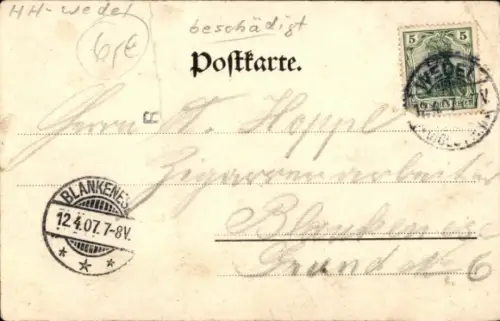 HH-Wedel
beschädigt
6,-€
Postkarte.
5 5
WEDEL
12.4.07. V
R
Herrn A. Hoppe
Zigarrenarbeiter
BLANKENESE
12.4.07. 7-8V.
Blankenese
Grund No 6